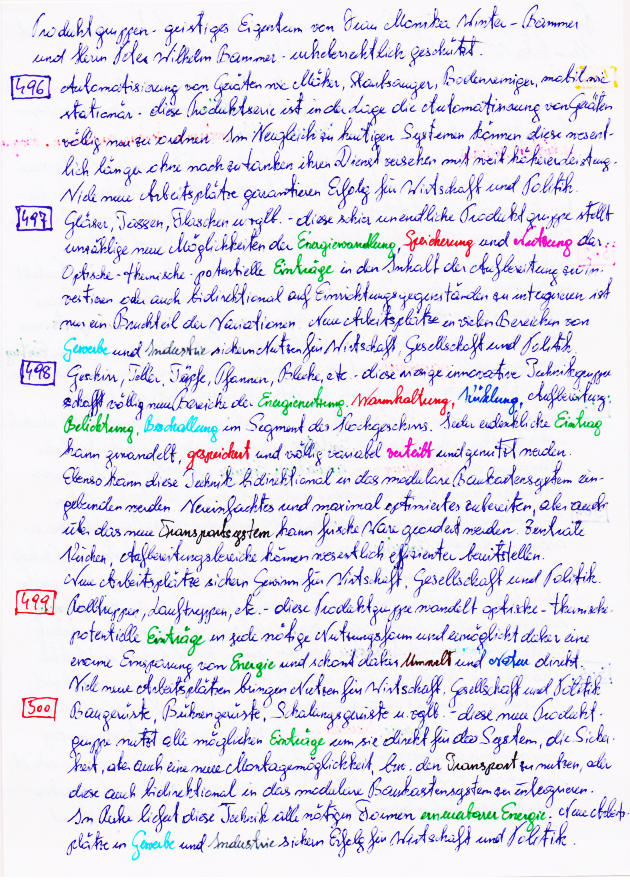 Produktgruppen - geistiges Eigentum von Frau Monika Winter-Bammer
und Herrn Peter Wilhelm Bammer - urheberrechtlich geschützt.
496 Automatisierung von Geräten wie Mäher, Staubsauger, Bodenreiniger, mobil wie
stationär - diese Produktserie ist in der Lage die Automatisierung von Geräten
völlig neu zu ordnen. Im Vergleich zu heutigen Systemen können diese wesent-
lich länger ohne nach zu tanken ihren Dienst versehen mit weit höherer Leistung.
Viele neue Arbeitsplätze garantieren Erfolg für Wirtschaft und Politik.
497 Gläser, Tassen, Flaschen u. vglb. - diese schier unendliche Produktgruppe stellt
unzählige neue Möglichkeiten der Energiewandlung, Speicherung und Nutzung dar.
Optische-thermische-potentielle Einträge in den Inhalt der Aufbereitung zu in-
vestieren oder auch bidirektional auf Einrichtungsgegenständen zu integrieren ist
nur ein Bruchteil der Variationen. Neue Arbeitsplätze in vielen Bereichen von
Gewerbe und Industrie sichern Nutzen für Wirtschaft, Gesellschaft und Politik.
498 Geschirr, Teller, Töpfe, Pfannen, Bleche, etc - diese innovative Technikgruppe
schafft völlig neue Bereiche der Energienutzung, Warmhaltung, Kühlung, Aufbereitung,
Belichtung, Beschallung im Segment des Kochgeschirrs. Jeder erdenkliche Eintrag
kann gewandelt, gespeichert und völlig variabel verteilt und genutzt werden.
Ebenso kann diese Technik bidirektional in das modulare Baukastensystem ein-
gebunden werden. Vereinfachtes und maximal optimiertes zubereiten, aber auch
über das neue Transportsystem kann frische Ware geordert werden. Zentrale
Küchen, Aufbereitungsbereiche können wesentlich effizienter bereitstellen.
Neue Arbeitsplätze sichern Gewinn für Wirtschaft, Gesellschaft und Politik.
499 Rolltreppen, Lauftreppen, etc. - diese Produktgruppe wandelt optische-thermische-
potentielle Einträge in jede nötige Nutzungsform und ermöglicht daher eine
enorme Einsparung von Energie und schont daher Umwelt und Natur direkt.
Viele neue Arbeitsplätzen bringen Nutzen für Wirtschaft, Gesellschaft und Politik
500 Baugerüste, Bühnengerüste, Schalungsgerüste u. vglb. - diese neue Produkt-
gruppe nutzt alle möglichen Einträge um sie direkt für das System, die Sicher-
heit, aber auch eine neue Montagemöglichkeit, bzw. den Transport zu nutzen, oder
diese auch bidirektional in das modulare Baukastensystem zu integrieren.
Im Reihe liefert diese Technik alle nötigen Formen erneuerbarer Energie. Neue Arbeits-
plätze in Gewerbe und Industrie sichern Erfolg für Wirtschaft und Politik.